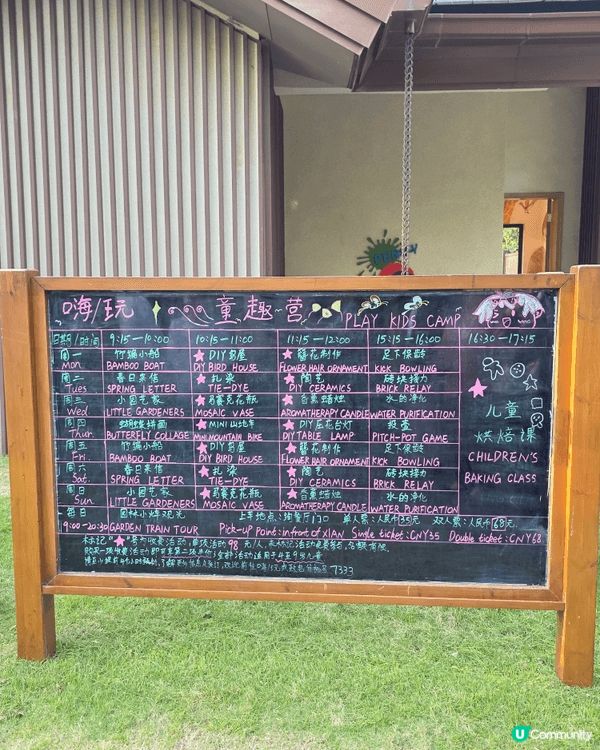 嗨/玩 童趣营 PLAY KIDS CAMP
日期/时间 9:15—10:00 10:15—11:00 11:15—12:00 15:15—16:00 16:30—17:15
周一 竹编小船 ★DIY鸟屋 ★簪花制作 足下保龄
Mon BAMBOO BOAT DIY BIRD HOUSE FLOWER HAIR ORNAMENT KICK BOWLING
周二 春日来信 ★扎染 ★陶艺 砖块接力
Tues SPRING LETTER TIE-DYE DIY CERAMICS BRICK RELAY
周三 小园艺家 ★马赛克花瓶 ★香薰蜡烛 水的净化
Wed LITTLE GARDENERS MOSAIC VASE AROMATHERAPY CANDLE WATER PURIFICATION
周四 蝴蝶拼画 ★MINI山地车 ★DIY压花台灯 投壶
Thur BUTTERFLY COLLAGE MINI MOUNTAIN BIKE DIY TABLE LAMP PITCH-POT GAME
周五 竹编小船 ★DIY鸟屋 ★簪花制作 足下保龄
Fri BAMBOO BOAT DIY BIRD HOUSE FLOWER HAIR ORNAMENT KICK BOWLING
周六 春日来信 ★扎染 ★陶艺 砖块接力
Sat. SPRING LETTER TIE-DYE DIY CERAMICS BRICK RELAY
周日 小园艺家 ★马赛克花瓶 ★香薰蜡烛 水的净化
Sun LITTLE GARDENERS MOSAIC VASE AROMATHERAPY CANDLE WATER PURIFICATION
儿童
烘焙课
CHILDREN'S
BAKING CLASS
每日 园林小火车观光 上车地点: 单人票:人民币35元 双人票:人民币68元
19:00-20:30 GARDEN TRAIN TOUR Pick-up Point: infront of XIAN Single ticket: CNY35 Double ticket: CNY68
标记"★"号为收费活动,单项活动98元/人,未标记活动免费
7333
U Community